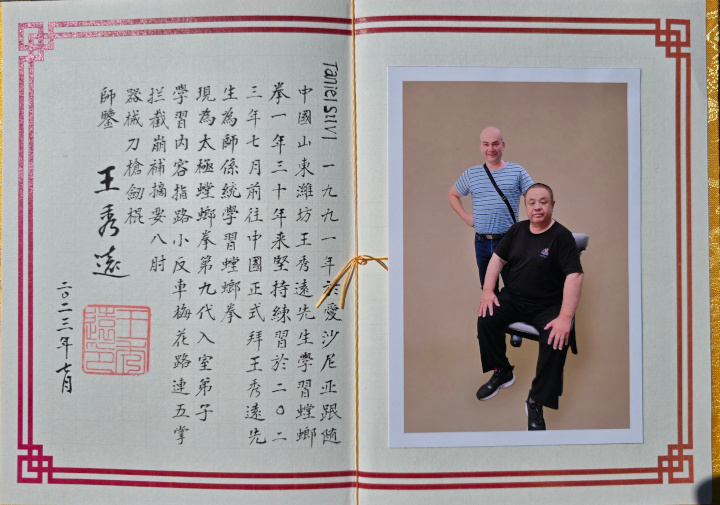 Taniel Silvi 一九九一年於愛沙尼亚跟随
中國山東濰坊王秀遠先生學習螳螂
拳一年三十年来堅持練習於二〇二
三年七月前往中國正式拜王秀遠先
生為師係統學習螳螂拳
現為太極螳螂拳第九代入室弟子
學習内容指路小反車梅花路連五掌
拦截崩補摘要八肘
器械刀槍劍棍
師鑒 王秀遠
二〇二三年七月